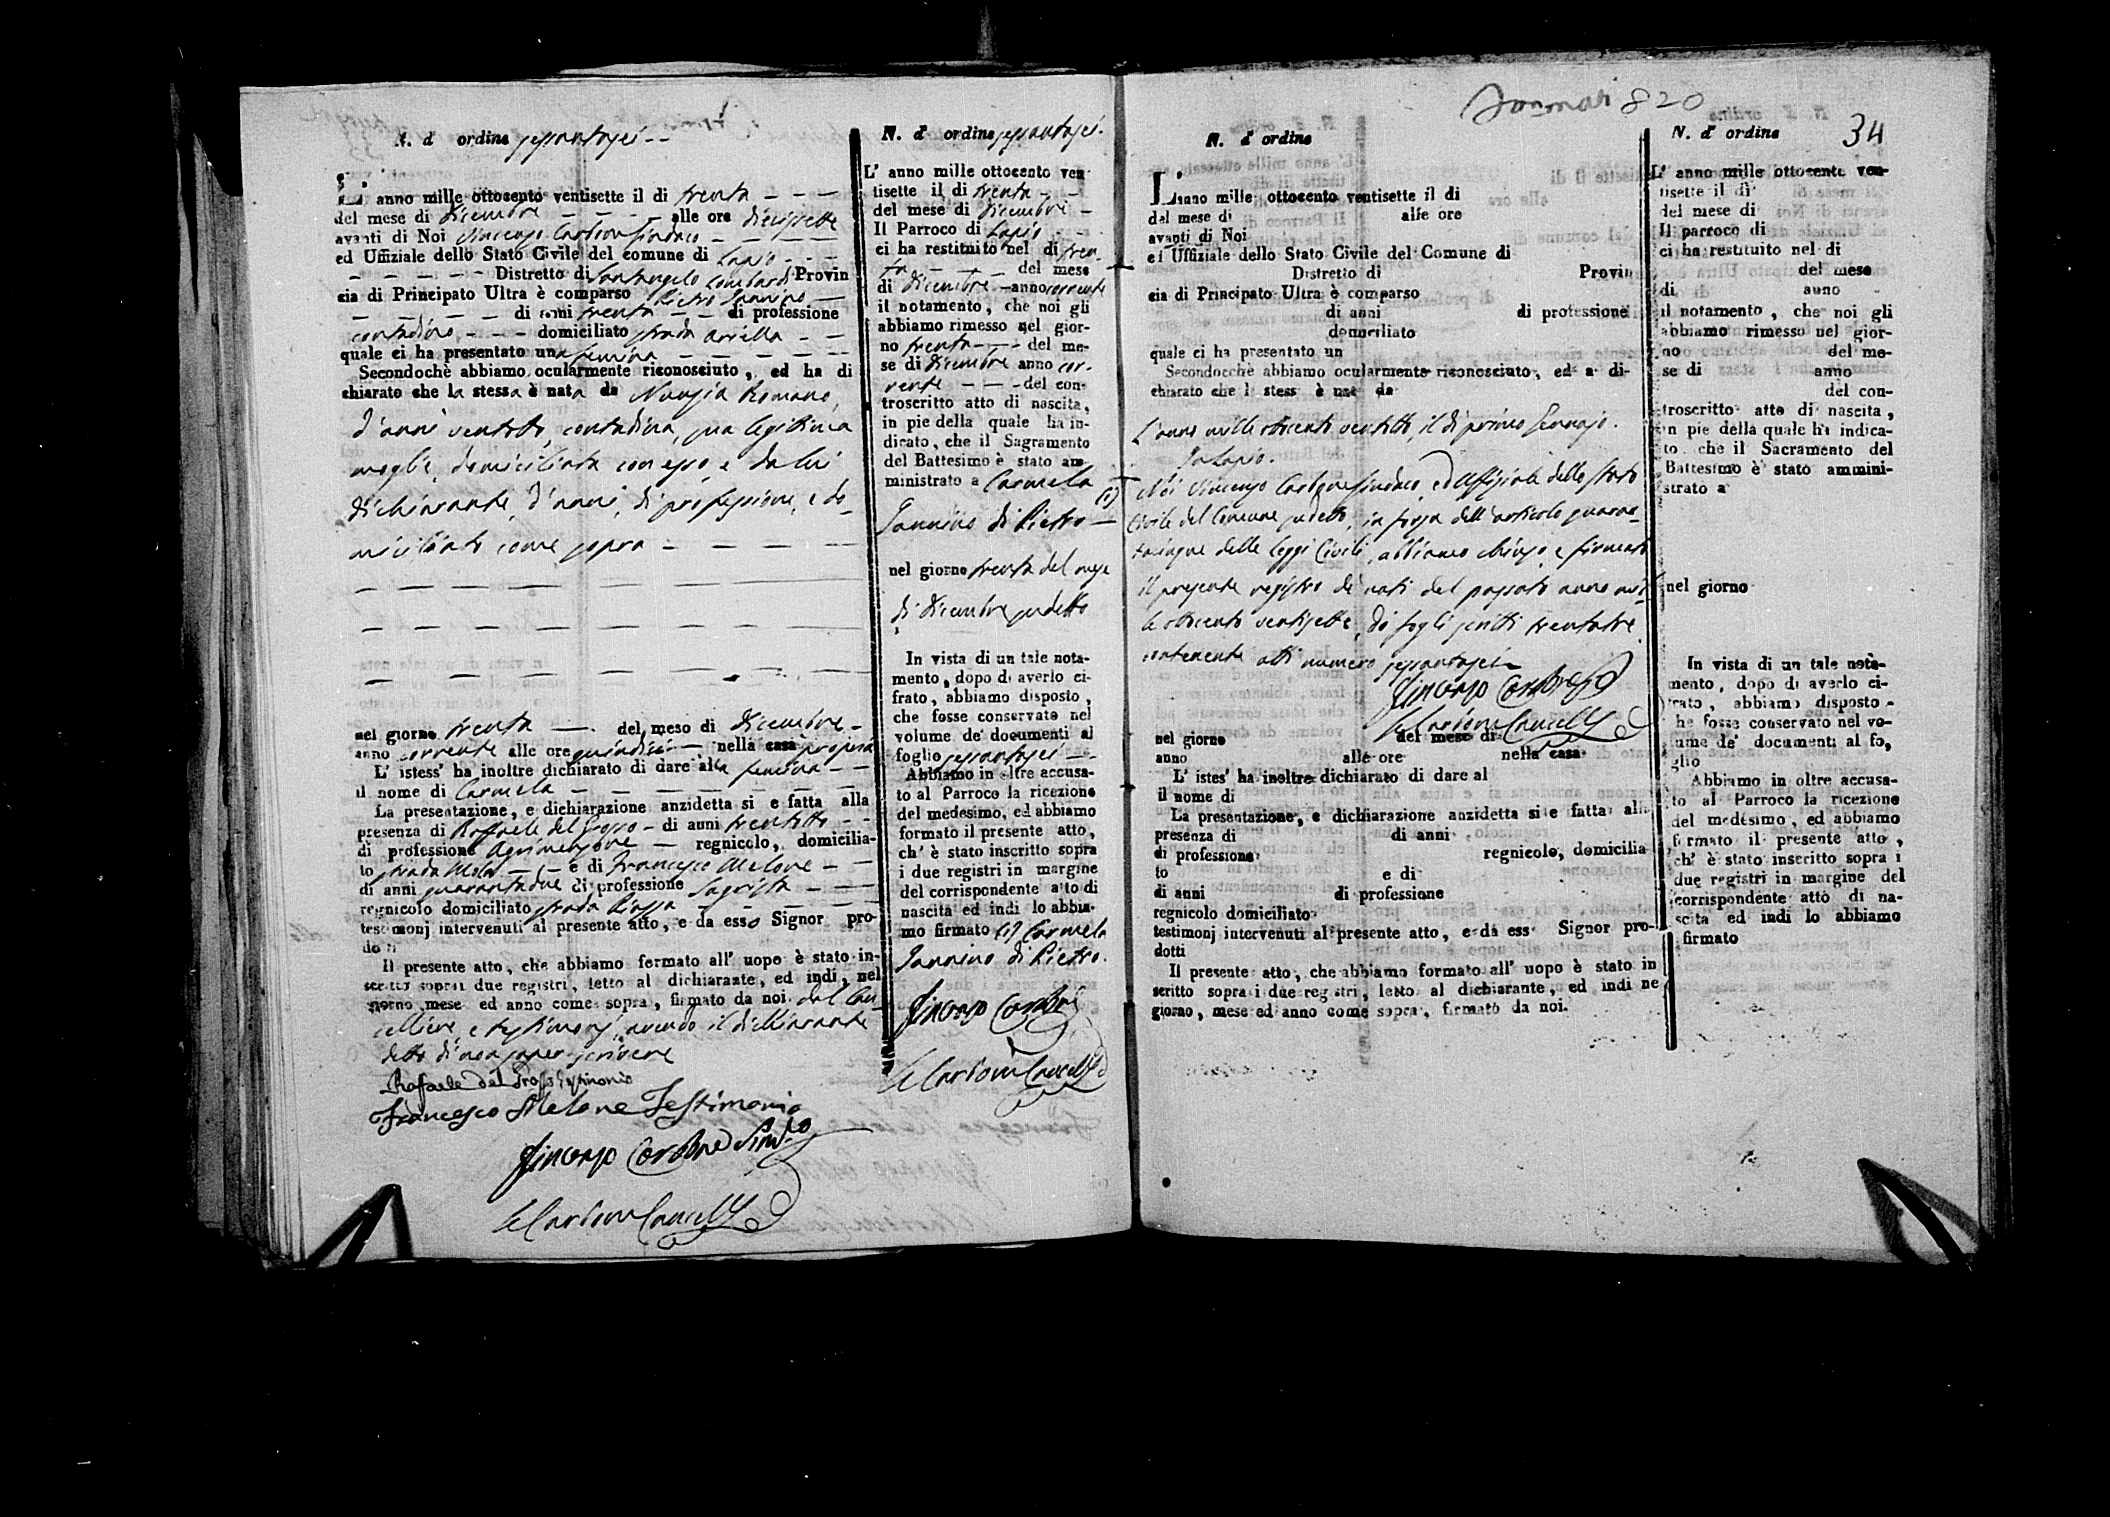 N. d' ordine sessantasei
L' anno mille ottocento ventisette il di trenta
del mese di Dicembre alle ore diecissette
avanti di Noi Vincenzo Carbone Sindaco
ed Uffiziale dello Stato Civile del comune di Lapio
Distretto di Santangelo Lombardi Provin
cia di Principato Ultra è comparso Pietro Iannino
di anni trenta di professione
contadino domiciliato strada
quale ci ha presentato una femina
Secondochè abbiamo ocularmente riconosciuto, ed ha di
chiarato che la stessa è nata da Nunzia Romano,
d'anni ventotto, contadina, sua legittima
moglie, domiciliata con esso, e da lui
dichiarante, d'anni, di professione, e do-
miciliato come sopra
nel giorno trenta del meso di Dicembre
anno corrente alle ore quindici nella casa propria
L' istess' ha inoltre dichiarato di dare alla femina
il nome di Carmela
La presentazione, e dichiarazione anzidetta si e fatta alla
presenza di Raffaele del Grosso di anni trentotto
di professione Agrimensore regnicolo, domicilia-
to strada e di Francesco Melone
di anni quarantadue di professione Sagrista
regnicolo domiciliato strada Piazza
testimonj intervenuti al presente atto, e da esso Signor pro-
dotti
Il presente atto, che abbiamo formato all' uopo è stato in-
scritto sopra i due registri, letto al dichiarante, ed indi, nel
giorno, mese ed anno come sopra, firmato da noi dal Can
celliere, e testimonj, avendo il dichiarante
detto di non saper scrivere
Raffaele del Grosso Testimonio
Francesco Melone Testimonio
Vincenzo Carbone Sind.o
Carbone Canc.
N. d' ordine sessantasei.
L' anno mille ottocento ven
tisette il di trenta
del mese di Dicembre
Il Parroco di Lapio
ci ha restituito nel di tren-
ta del mese
di Dicembre anno corrente
il notamento, che noi gli
abbiamo rimesso nel gior-
no trenta del me-
se di Dicembre anno cor-
rente del con-
troscritto atto di nascita,
in pie della quale ha in-
dicato, che il Sagramento
del Battesimo è stato am
ministrato a Carmela (1)
Iannino di Pietro
nel giorno trenta del mese
di Dicembre sudetto
In vista di un tale nota-
mento, dopo di averlo ci-
frato, abbiamo disposto,
che fosse conservato nel
volume de' documenti al
foglio sessantasei
Abbiamo in oltre accusa-
to al Parroco la ricezione
del medesimo, ed abbiamo
formato il presente atto,
ch' è stato inscritto sopra
i due registri in margine
del corrispondente atto di
nascita ed indi lo abbia-
mo firmato (1) Carmela
Iannino di Pietro.
Vincenzo Carbone
Carbone Canc.
820
34
N. d' ordine
L' anno mille ottocento ventisette il di
del mese di alle ore
avanti di Noi
ed Uffiziale dello Stato Civile del Comune di
Distretto di Provin
cia di Principato Ultra è comparso
di anni di professione
domiciliato
quale ci ha presentato un
Secondocchè abbiamo ocularmente riconosciuto, ed a di-
chiarato che l stess è nat da
L'anno mille ottocento ventotto, il di primo Gennajo.
In Lapio.
Noi Vincenzo Carbone Sindaco, ed Uffiziale dello Stato
Civile del Comune sudetto, in forza dell'articolo quaran-
tacinque delle Leggi Civili, abbiamo chiuso, e firmato
il presente registro de' nati del passato anno mil-
le ottocento ventisette, di fogli scritti trentatre
contenente atti numero sessantasei
Vincenzo Carbone
Carbone Canc.
nel giorno del mese di
anno alle ore nella casa
L' istes' ha inoltre dichiarato di dare al
il nome di
La presentazione, e dichiarazione anzidetta si e fatta all
presenza di di anni
di professione regnicolo, domicilia
to e di
di anni di professione
regnicolo domiciliato
testimonj intervenuti al presente atto, e da ess Signor pro-
dotti
Il presente atto, che abbiamo formato all' uopo è stato in
scritto sopra i due registri, letto al dichiarante, ed indi ne
giorno, mese ed anno come sopra, firmato da noi.
N. d' ordine
L' anno mille ottocento ven-
tisette il di
del mese di
Il parroco di
ci ha restituito nel di
del mese
di anno
il notamento, che noi gli
abbiamo rimesso nel gior-
no del me-
se di anno
del con-
troscritto atto di nascita,
in pie della quale ha indica-
to che il Sacramento del
Battesimo è stato ammini-
strato a
nel giorno
In vista di un tale notà-
mento, dopo di averlo ci-
frato, abbiamo disposto
che fosse conservato nel vo-
lume de' documenti al fo,
glio
Abbiamo in oltre accusa-
to al Parroco la ricezione
del medesimo, ed abbiamo
formato il presente atto,
ch' è stato inscritto sopra i
due registri in margine del
corrispondente atto di na-
scita ed indi lo abbiamo
firmato